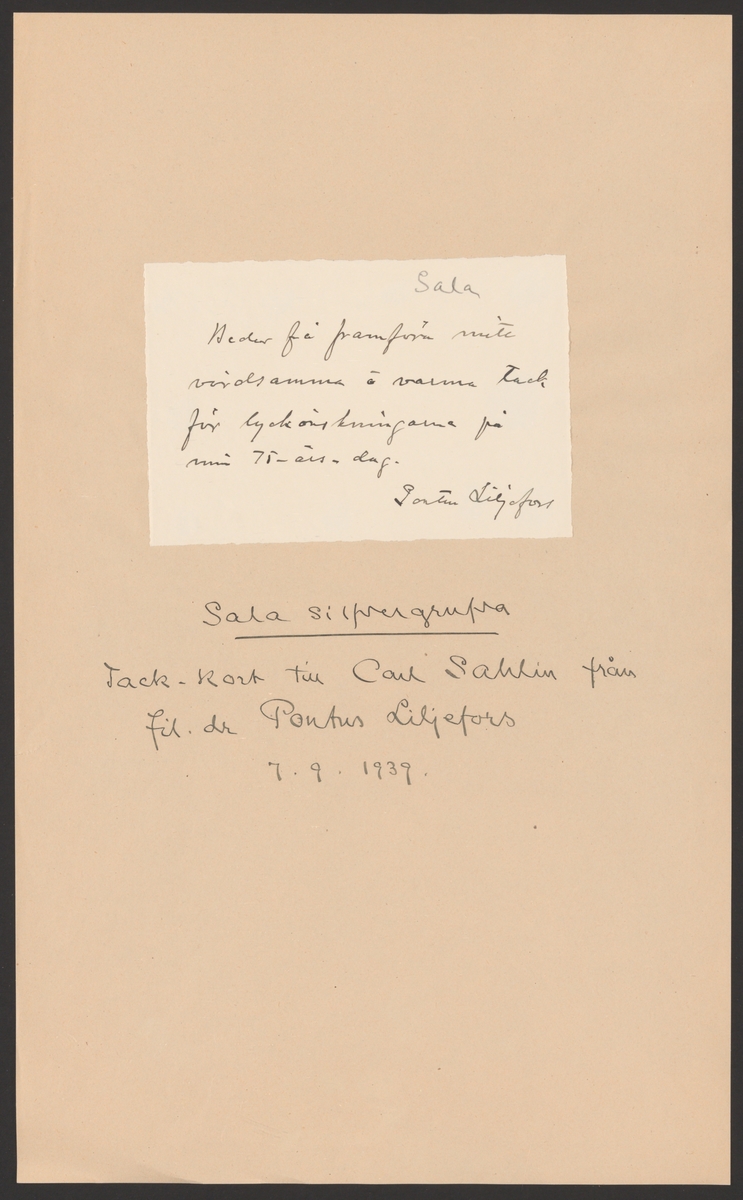 Sala
Beder få framföra mitt
vördsamma å varma tack
för lyckönskningarna på
min 75-års-dag.
Pontus Liljefors
Sala silfvergrufva
Tack-kort till Carl Sahlin från
fil. dr Pontus Liljefors
7.9.1939.